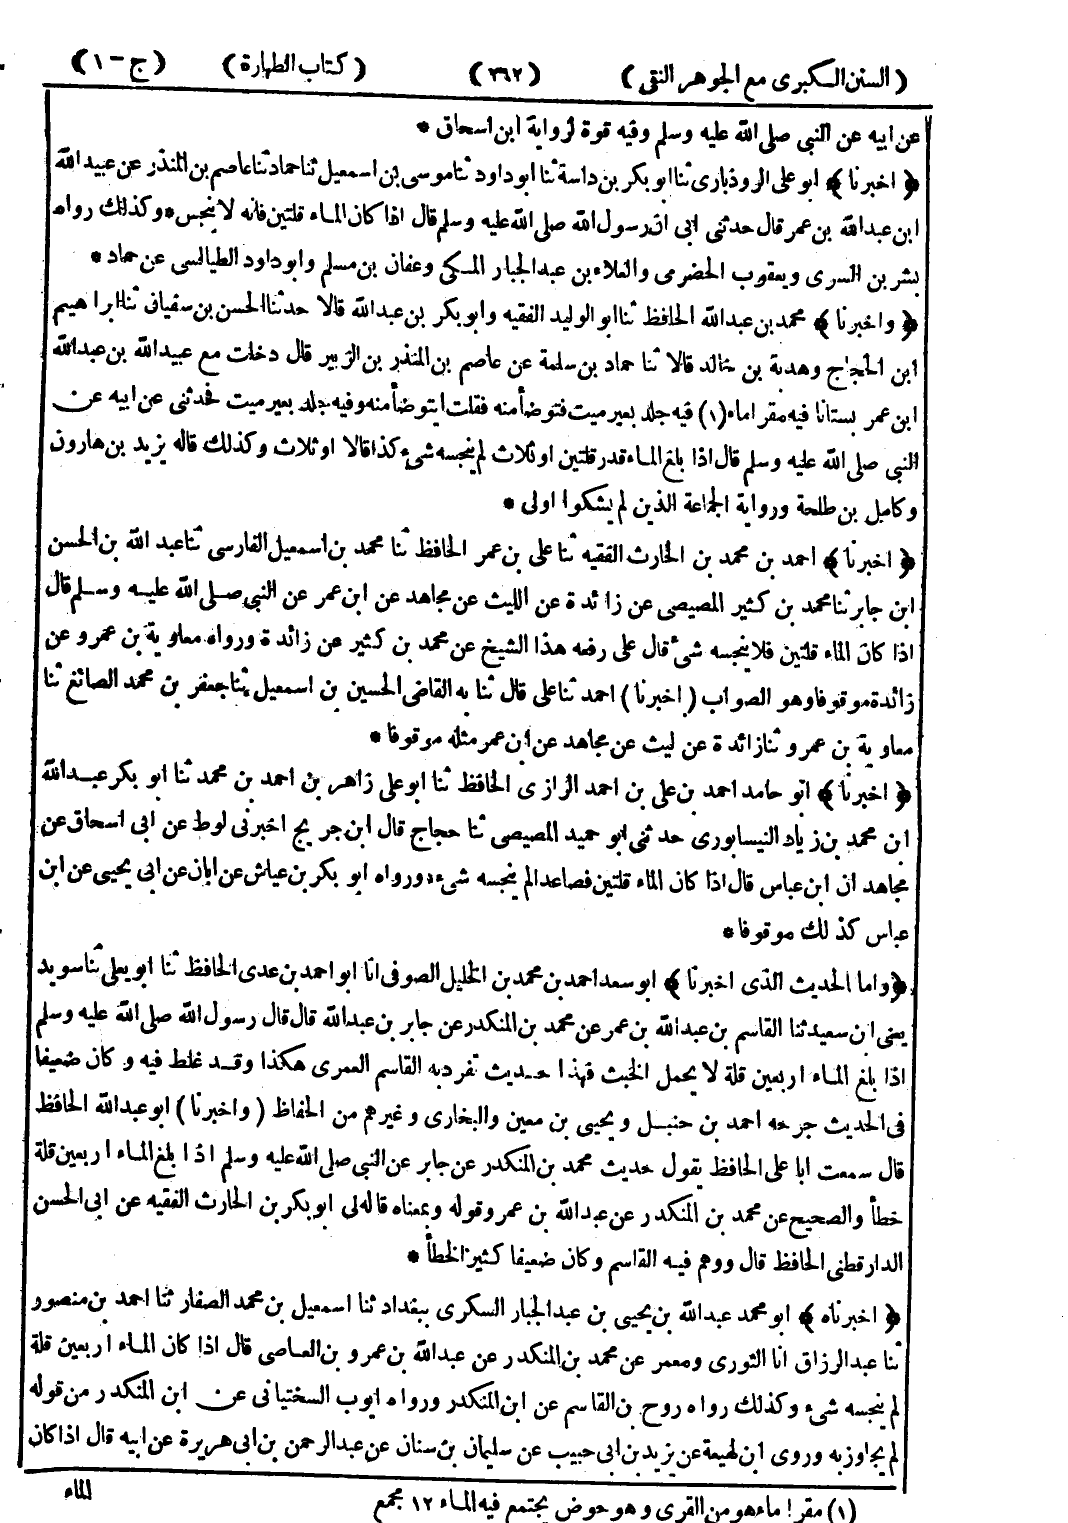 ( السنن الكبرى مع الجوهر النقى ) ( ٢٦٢ ) ( كتاب الطهارة ) ( ج - ١ )
عن ابيه عن النبى صلى الله عليه وسلم وفيه قوة لرواية ابن اسحاق *
﴿ اخبرنا ﴾ ابو على الروذبارى ثنا ابو بكر بن داسة ثنا ابو داود ثنا موسى بن اسمعيل ثنا حماد ثنا عاصم بن المنذر عن عبيد الله
ابن عبدالله بن عمر قال حدثنى ابى ان رسول الله صلى الله عليه وسلم قال اذا كان الماء قلتين فانه لا ينجس * وكذلك رواه
بشر بن السرى ويعقوب الحضرمى والعلاء بن عبد الجبار المكى وعفان بن مسلم وابو داود الطيالسى عن حماد *
﴿ واخبرنا ﴾ محمد بن عبدالله الحافظ ثنا ابو الوليد الفقيه وابو بكر بن عبدالله قالا حدثنا الحسن بن سفيان ثنا ابراهيم
ابن الحجاج وهدبة بن خالد قالا ثنا حماد بن سلمة عن عاصم بن المنذر بن الزبير قال دخلت مع عبيدالله بن عبدالله
ابن عمر بستانا فيه مقراماء (١) فيه جلد بعير ميت فتوضأ منه فقلت ايتوضأ منه وفيه جلد بعير ميت فحدثنى عن ابيه عن
النبى صلى الله عليه وسلم قال اذا بلغ الماء قدر قلتين او ثلاث لم ينجسه شىء كذا قالا او ثلاث وكذلك قاله يزيد بن هارون
وكامل بن طلحة ورواية الجماعة الذين لم يشكوا اولى *
﴿ اخبرنا ﴾ احمد بن محمد بن الحارث الفقيه ثنا على بن عمر الحافظ ثنا محمد بن اسمعيل الفارسى ثنا عبد الله بن الحسن
ابن جابر ثنا محمد بن كثير المصيصى عن زائدة عن الليث عن مجاهد عن ابن عمر عن النبى صلى الله عليه وسلم قال
اذا كان الماء قلتين فلا ينجسه شىء قال على رفعه هذا الشيخ عن محمد بن كثير عن زائدة ورواه معاوية بن عمرو عن
زائدة موقوفا وهو الصواب ( اخبرنا ) احمد ثنا على قال ثنا به القاضى الحسين بن اسمعيل ثنا جعفر بن محمد الصائغ ثنا
معاوية بن عمرو ثنا زائدة عن ليث عن مجاهد عن ابن عمر مثله موقوفا *
﴿ اخبرنا ﴾ ابو حامد احمد بن على بن احمد الرازى الحافظ ثنا ابو على زاهر بن احمد بن محمد ثنا ابو بكر عبدالله
ابن محمد بن زياد النيسابورى حدثنى ابو حميد المصيصى ثنا حجاج قال ابن جريج اخبرنى لوط عن ابى اسحاق عن
مجاهد ان ابن عباس قال اذا كان الماء قلتين فصاعدا لم ينجسه شىء ورواه ابو بكر بن عياش عن ابان عن ابى يحيى عن ابن
عباس كذلك موقوفا *
﴿ واما الحديث الذى اخبرنا ﴾ ابو سعد احمد بن محمد بن الخليل الصوفى انا ابو احمد بن عدى الحافظ ثنا ابو يعلى ثنا سويد
يعنى ابن سعيد ثنا القاسم بن عبدالله بن عمر عن محمد بن المنكدر عن جابر بن عبدالله قال قال رسول الله صلى الله عليه وسلم
اذا بلغ الماء اربعين قلة لا يحمل الخبث فهذا حديث تفرد به القاسم العمرى هكذا وقد غلط فيه وكان ضعيفا
فى الحديث جرحه احمد بن حنبل ويحيى بن معين والبخارى وغيرهم من الحفاظ ( واخبرنا ) ابو عبدالله الحافظ
قال سمعت ابا على الحافظ يقول حديث محمد بن المنكدر عن جابر عن النبى صلى الله عليه وسلم اذا بلغ الماء اربعين قلة
خطأ والصحيح عن محمد بن المنكدر عن عبدالله بن عمرو قوله وبمعناه قاله لى ابو بكر بن الحارث الفقيه عن ابى الحسن
الدارقطنى الحافظ قال ووهم فيه القاسم وكان ضعيفا كثير الخطأ *
﴿ اخبرناه ﴾ ابو محمد عبدالله بن يحيى بن عبد الجبار السكرى ببغداد ثنا اسمعيل بن محمد الصفار ثنا احمد بن منصور
ثنا عبد الرزاق انا الثورى ومعمر عن محمد بن المنكدر عن عبدالله بن عمرو بن العاصى قال اذا كان الماء اربعين قلة
لم ينجسه شىء وكذلك رواه روح بن القاسم عن ابن المنكدر ورواه ايوب السختيانى عن ابن المنكدر من قوله
لم يجاوز به وروى ابن لهيعة عن يزيد بن ابى حبيب عن سليمان بن سنان عن عبد الرحمن بن ابى هريرة عن ابيه قال اذا كان
الماء
(١) مقرا ماء هو من القرى وهو حوض يجتمع فيه الماء ١٢ مجمع